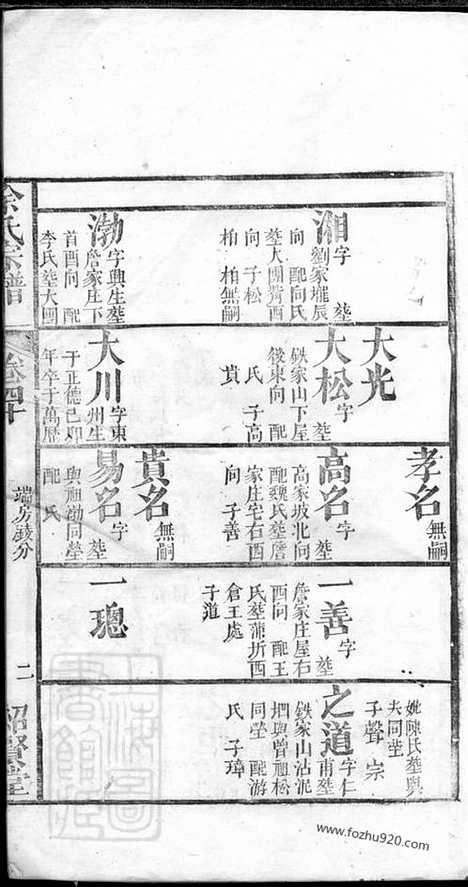 湘字 塟
劉家壠辰
向 配向氏
塟大團背酉
向 子松
柏 柏無嗣
渤字興生塟
詹家庄下
首酉向 配
李氏塟大團
大光
大松字 塟
鉄家山下屋
後東向 配
氏 子高
貴
大川字東
州生
于正德己卯
年卒于萬曆
孝名無嗣
高名字 塟
高家坡北向
配魏氏塟詹
家庄宅右酉
向 子善
貴名無嗣
易名字 塟
與祖渤同塋
配 氏
一善字 塟
詹家庄屋右
酉向 配王
氏塟蒲圻西
倉王處
子道
一璁
妣陳氏塟與
夫同塋
子聲 宗
之道字仁
甫塟
鉄家山沾泥
垇與曾祖松
同塋 配游
氏 子璋
余氏宗譜
卷四十
端房敍分
二
紹賢堂
上海圖書館藏
www.fozhu920.com